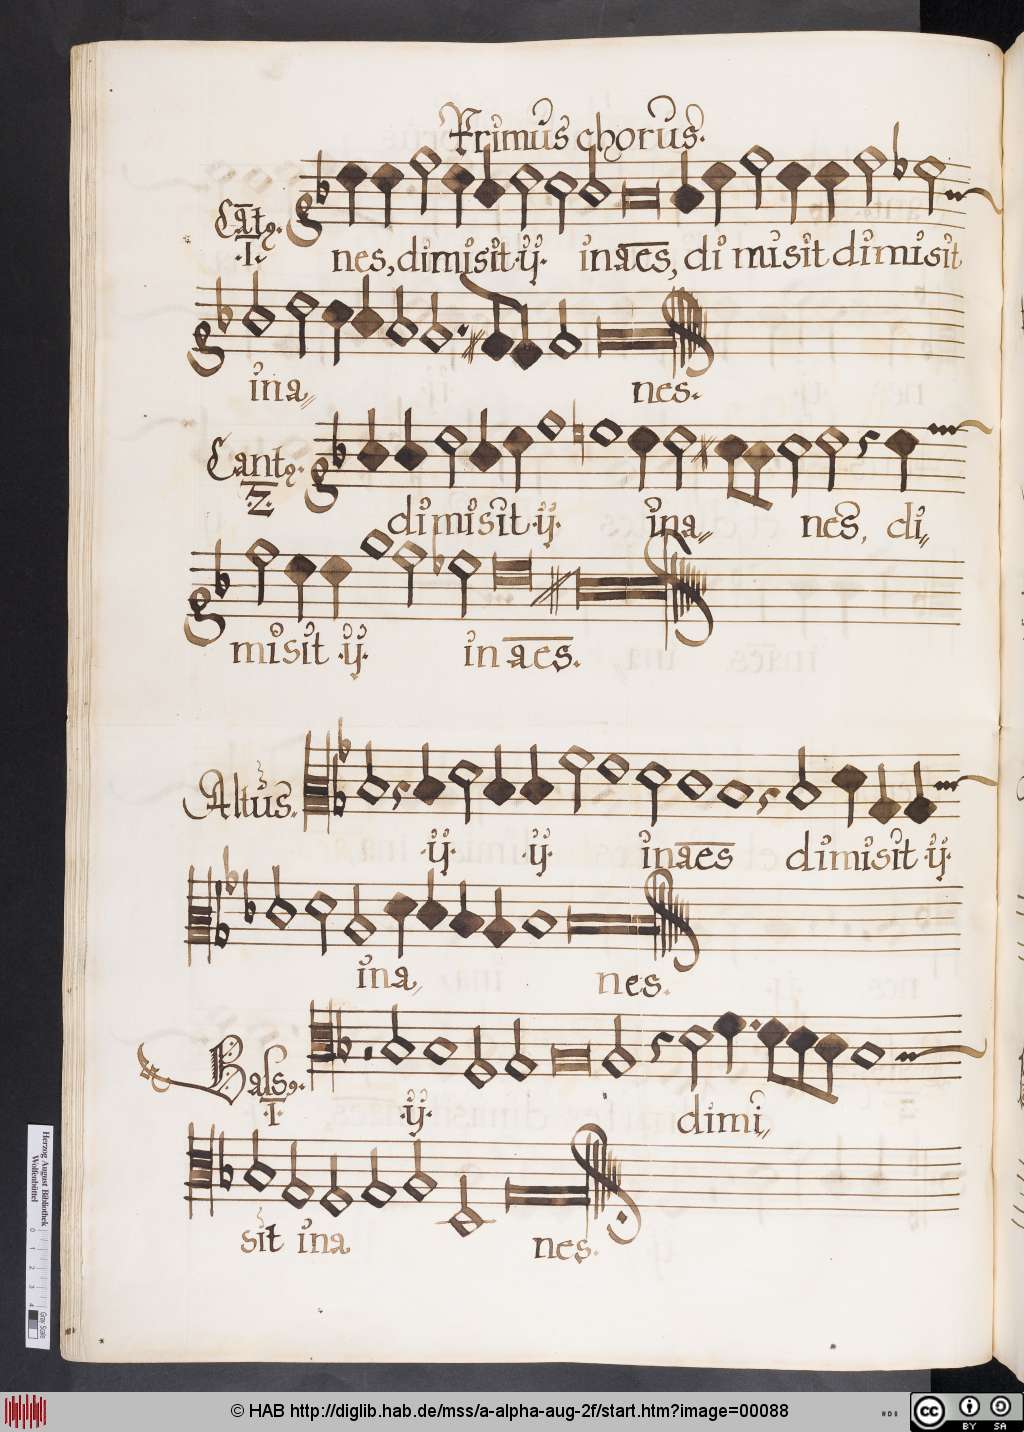 Primus chorus.
Cātꝯ.
·I·
nes, dimisit ·ij· inaes, di misit dimisit
ina„ nes.
Cantꝯ.
·2·
dimisit ·ij· ina„ nes, di„
misit ·ij· inaes.
Altus.
·ij· ·ij· inaes dimisit ·ij·
ina„ nes.
Bassꝯ.
·I·
·ij· dimi„
sit ina nes.
Herzog August Bibliothek
Wolfenbüttel
0 1 2 3 4
Gray Scale
© HAB http://diglib.hab.de/mss/a-alpha-aug-2f/start.htm?image=00088
HAB
cc BY SA